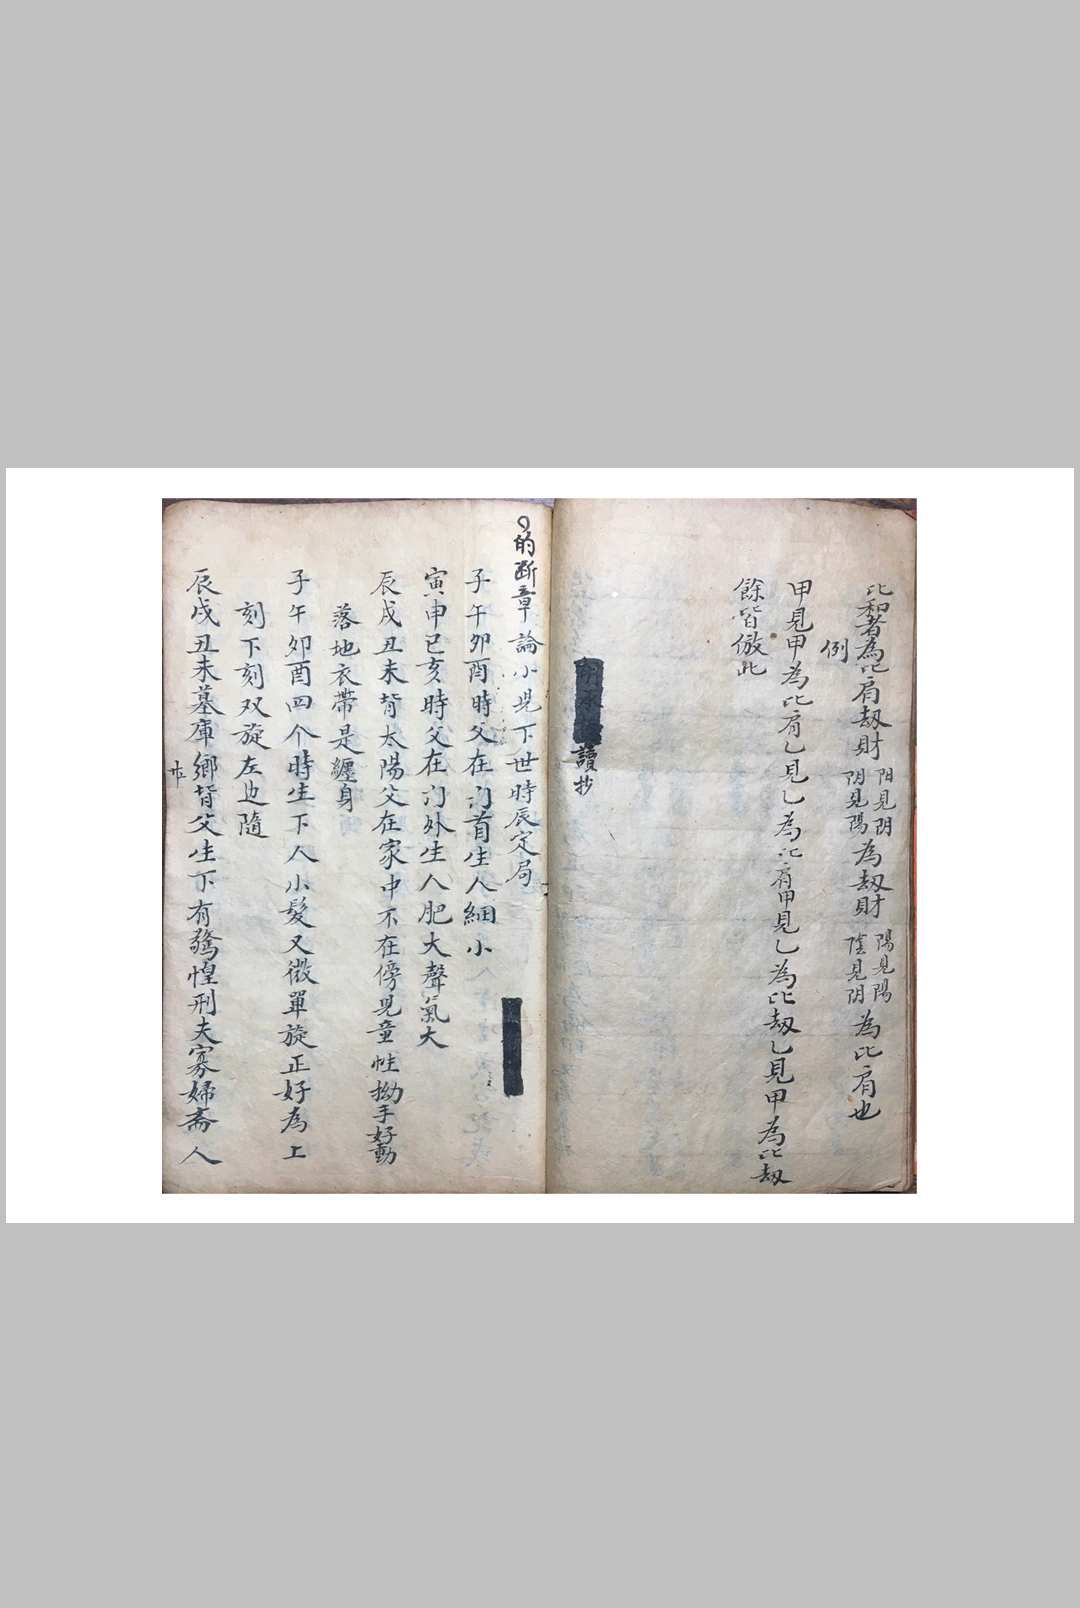 比和者為比肩刼財 陽見阴 阴見陽 為刼財 陽見陽 陰見阴 為比肩也
例
甲見甲為比肩乙見乙為比肩甲見乙為比刼乙見甲為比刼
餘皆倣此
讀抄
的断章論小児下世時辰定局
子午卯酉時父在门首生人細小
寅申巳亥時父在门外生人肥大聲氣大
辰戌丑未背太陽父在家中不在傍児童性拗手好動
落地衣帶是纏身
子午卯酉四个時生下人小髮又微單旋正好為上
刻下刻双旋左边隨
辰戌丑未墓庫鄉背父生下有驚惶刑夫寡婦斎人